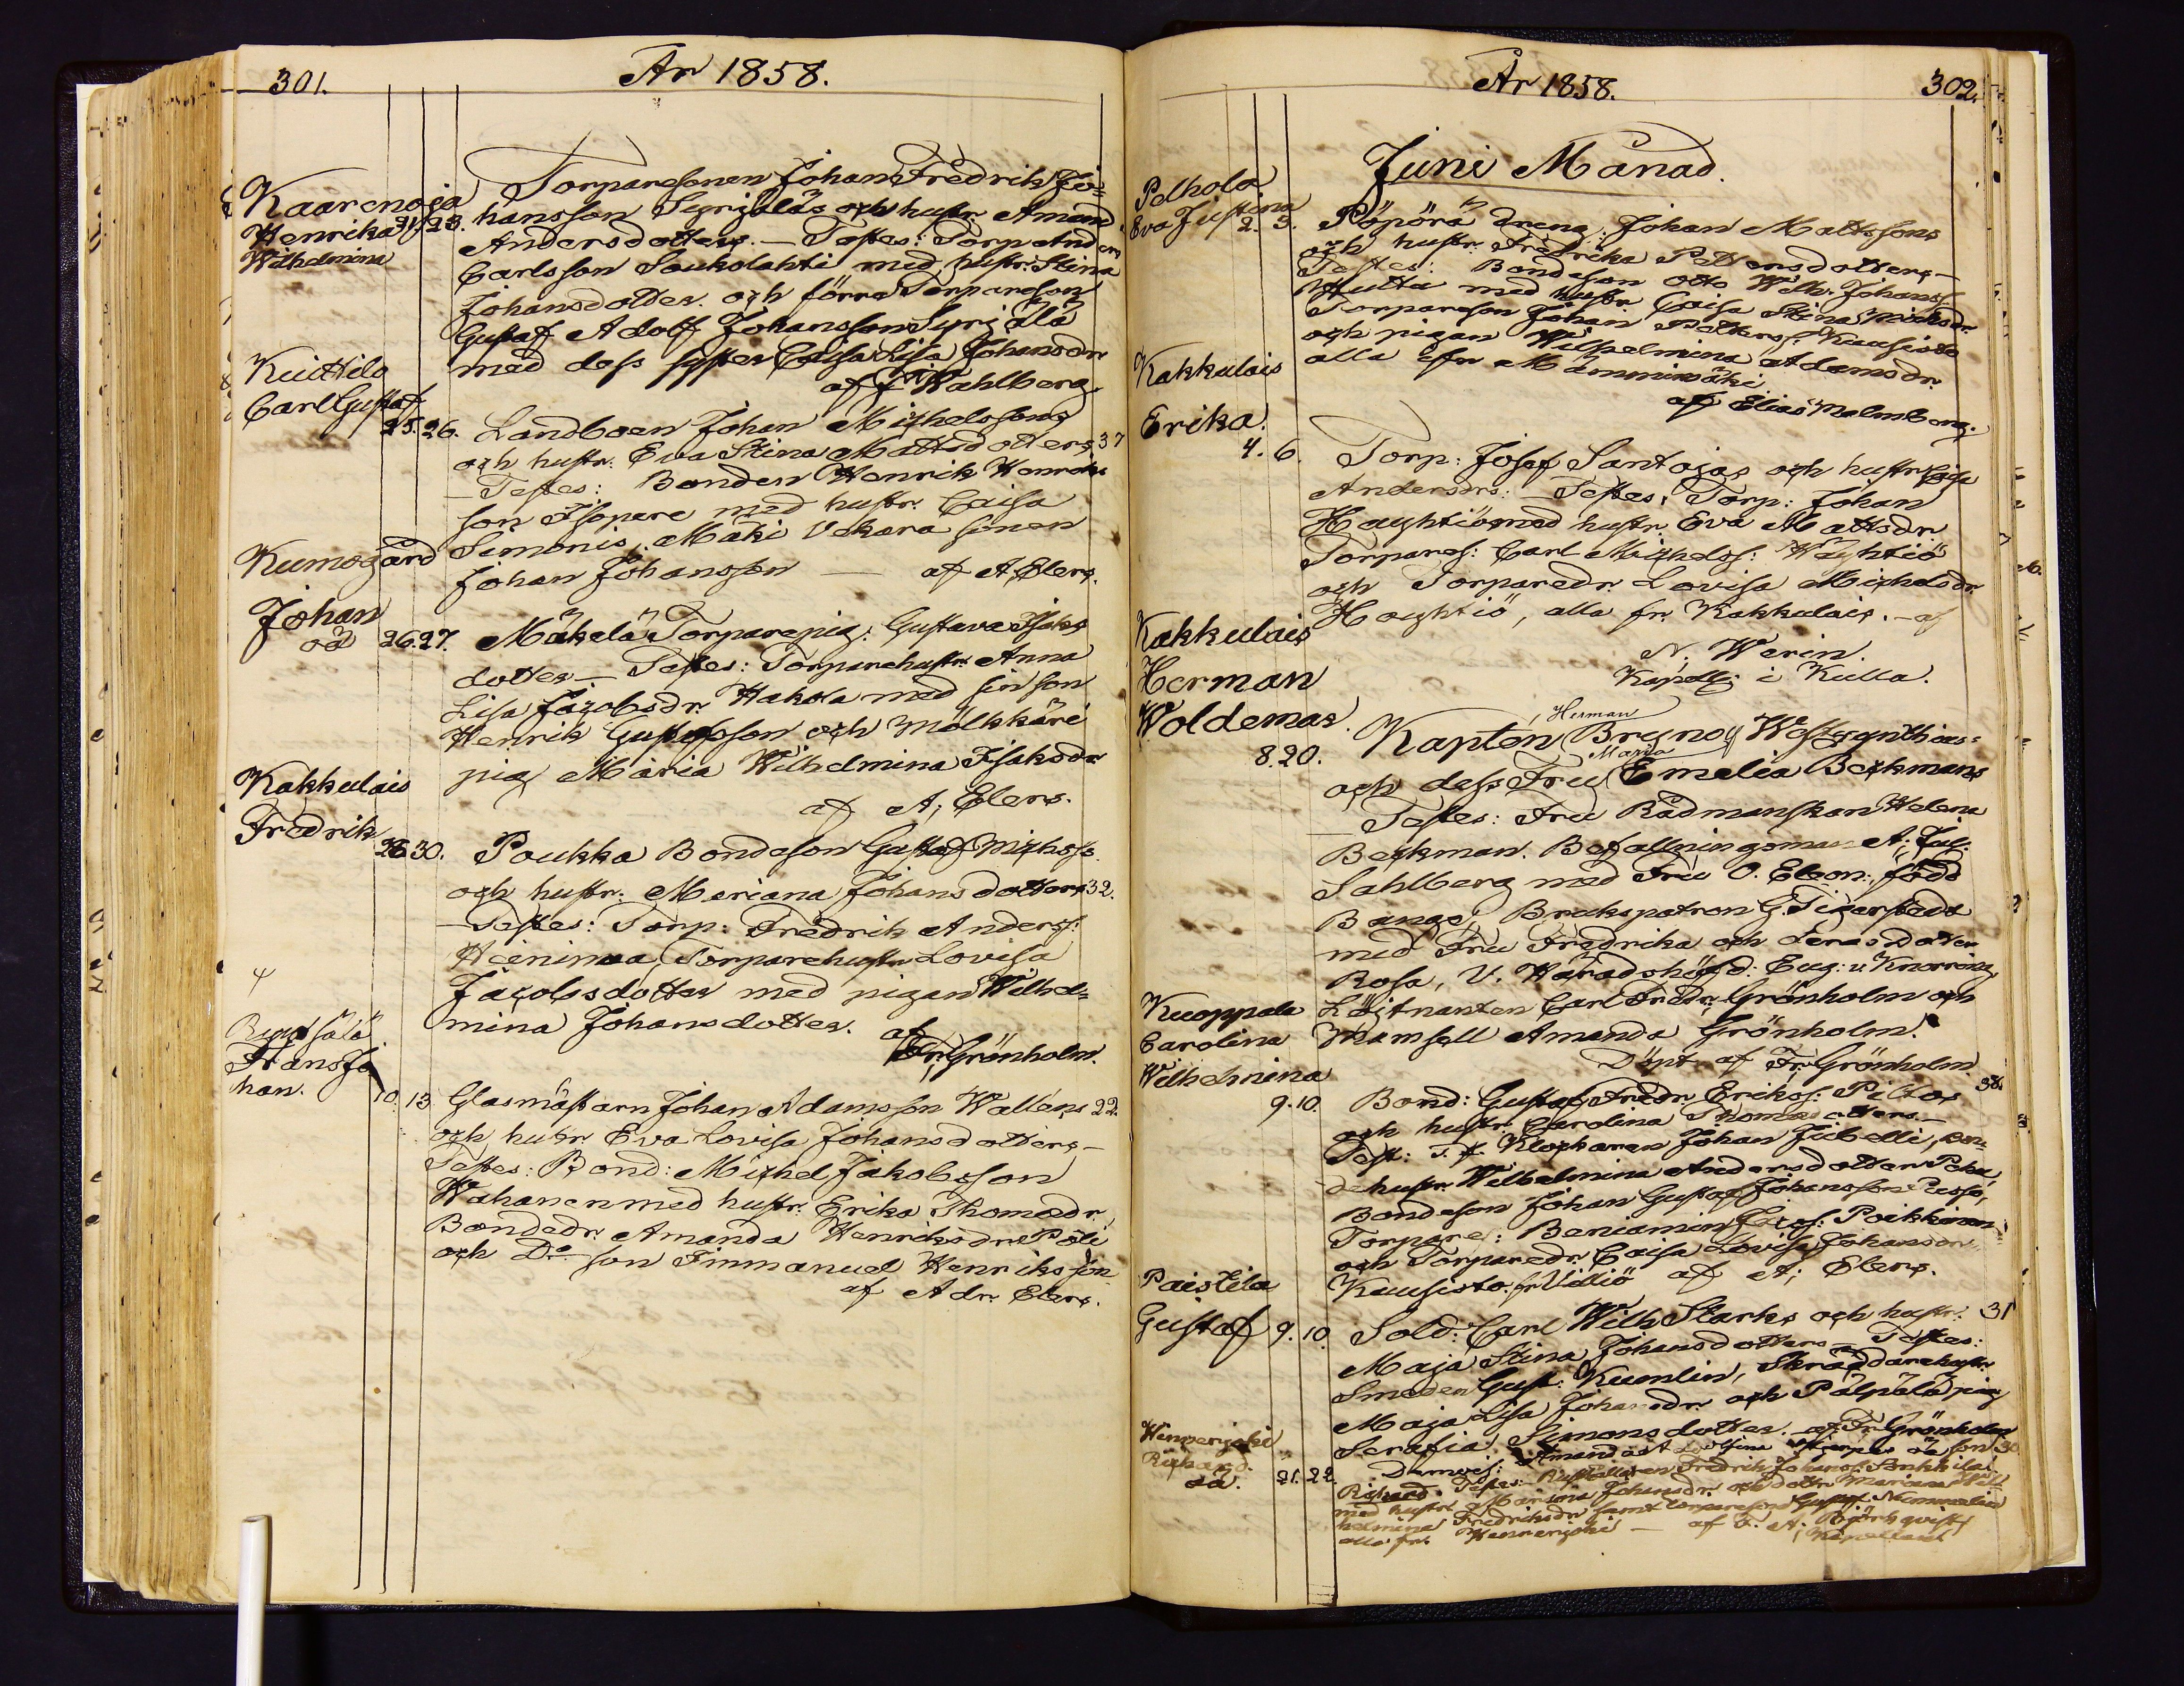 301.
År 1858.
Kaarenoja
Henrika 21. 23.
Wilhelmina
Torparesonen Johan Fredrik Jo=
hansson Syrjäläs och hustr. Amand
Andersdotters. — Testes: Torp. Anders
Carlsson Soukolahti med hustr. Stina
Johansdotter. och förra Torpareson
Gustaf Adolf Johansson Syrjälä
med dess syster Caisa Lisa Johansdr
af F. Wahlberg
Kuittila
Carl Gustaf
25. 26. Landboen Johan Michelssons
och hustr. Eva Stina Mattsdotters 37
— Testes: Bonden Henrik Henriks
son Isopere med hustr. Caisa
Simonis, Mäki Vekara sonen
Johan Johansson — af A. Elers.
Kumogård
Johan
oä 26. 27. Mäkelä Torparepig: Gustava Isaks
dotter — Testes: Torparehustr. Anna
Lisa Jacobsdr. Hakola med sin son
Henrik Gustafsson och Mölkkäri
pig Maria Wilhelmina Isaksdr
af A; Elers.
Kakkulais
Fredrik
28 30. Poukka Bondeson Gustaf Michelss.
och hustr: Meriana Johansdotters 32.
— Testes: Torp: Fredrik Anderss:
Heinimaa, Torparehustr. Lovisa
Jacobsdotter med pigan Wilhel=
mina Johansdotter. af
Fr; Grönholm.
Frans Jo
han.
10. 13 Glasmästarn Johan Adamsson Wallens 22.
och hustr. Eva Lovisa Johansdotters —
Testes: Bond: Michel Jakobsson
Wahanen med hustr. Erika Thomasdr,
Bondedr. Amanda Henriksdr Pöli
och Do son Immanuel Henriksson
af Adr. Elers.
År 1858.
302.
Juni Månad.
Pelhola
Eva Justina
2. 3. Pöpörä dreng: Johan Mattssons
och hustr. Fredrika Pettersdotters —
Testes: Bondeson Otto Wilh. Johanss.
Hutta med hustr. Caisa Stina Michelsdr.
Torpareson Johan Petterss. Kuusisto
och pigan Wilhelmina Adamsdr.
alla ifr. Mamminmäki
af Elias Malmberg.
Kakkulais
Erika.
4. 6. Torp: Josef Santojas och hustr. Lisa
Andersdrs: — Testes, Torp: Johan
Hayhtiö med hustr. Eva Mattsdr.
Torpares: Carl Michelss: Häyhtiö
och Torparedr. Lovisa Michelsdr
Hayhtiö, alla fr. Kakkulais. — af
N. Werin.
Kapell; i Kulla.
Kakkulais
Herman
Woldemar.
8. 20. Kapten Herman Bruno Westerynthius=
och dess Fru Maria Emelia Beckmans
— Testes: Fru Rådmanskan Helena
Beckman. Befallningsman A. Jul.
Sahlberg med Fru O. Eleon:, född
Bange, Brukspatron G. Tigerstedt
med Fru Fredrika och deras dotter
Rosa, V. Häradshöfd: Eug: v. Knorring,
Löjtnanten Carl Fredr. Grönholm och
Mamsell Amanda Grönholm.
Döpt af Fr. Grönholm
Kuoppala
Carolina
Wilhelmina
9. 10. Bond: Gustaf Fredr. Erikss. Piltos 38.
och hustr. Carolina Thomasdotters. —
Test: T. f. Klockaren Johan Jubelli, bon=
dehustr. Wilhelmina Andersdotter Peku,
Bondeson Johan Gustaf Johansson Pusso,
Torpare: Beniamin Poikkinen
och Torparedr. Caisa Lovisa Johansdr.
Kuusisto. fr. Villiö af A; Elers.
Paistila
Gustaf 9. 10 Sold: Carl Wilh Starks och hustr: 31
Maja Stina Johansdotters — Testes:
Smeden Gust: Kumlin, Skräddarehustr.
Maja Lisa Johansdr. och Pälpälä pig
Serafia Simonsdotter. af Fr. Grönholm
Hennerjoki
Rikard
oä. 21. 22. Amanda son 30
Rickard. Testes: Rusthållaren Fredrik
med hustr. Mariana Johansdr. och dottr. Mariana Wil=
helmina Fredriksdr samt torpareson Gustaf
alla fr. Hennerjoki — af F. A. Björkqvist
Kapellan